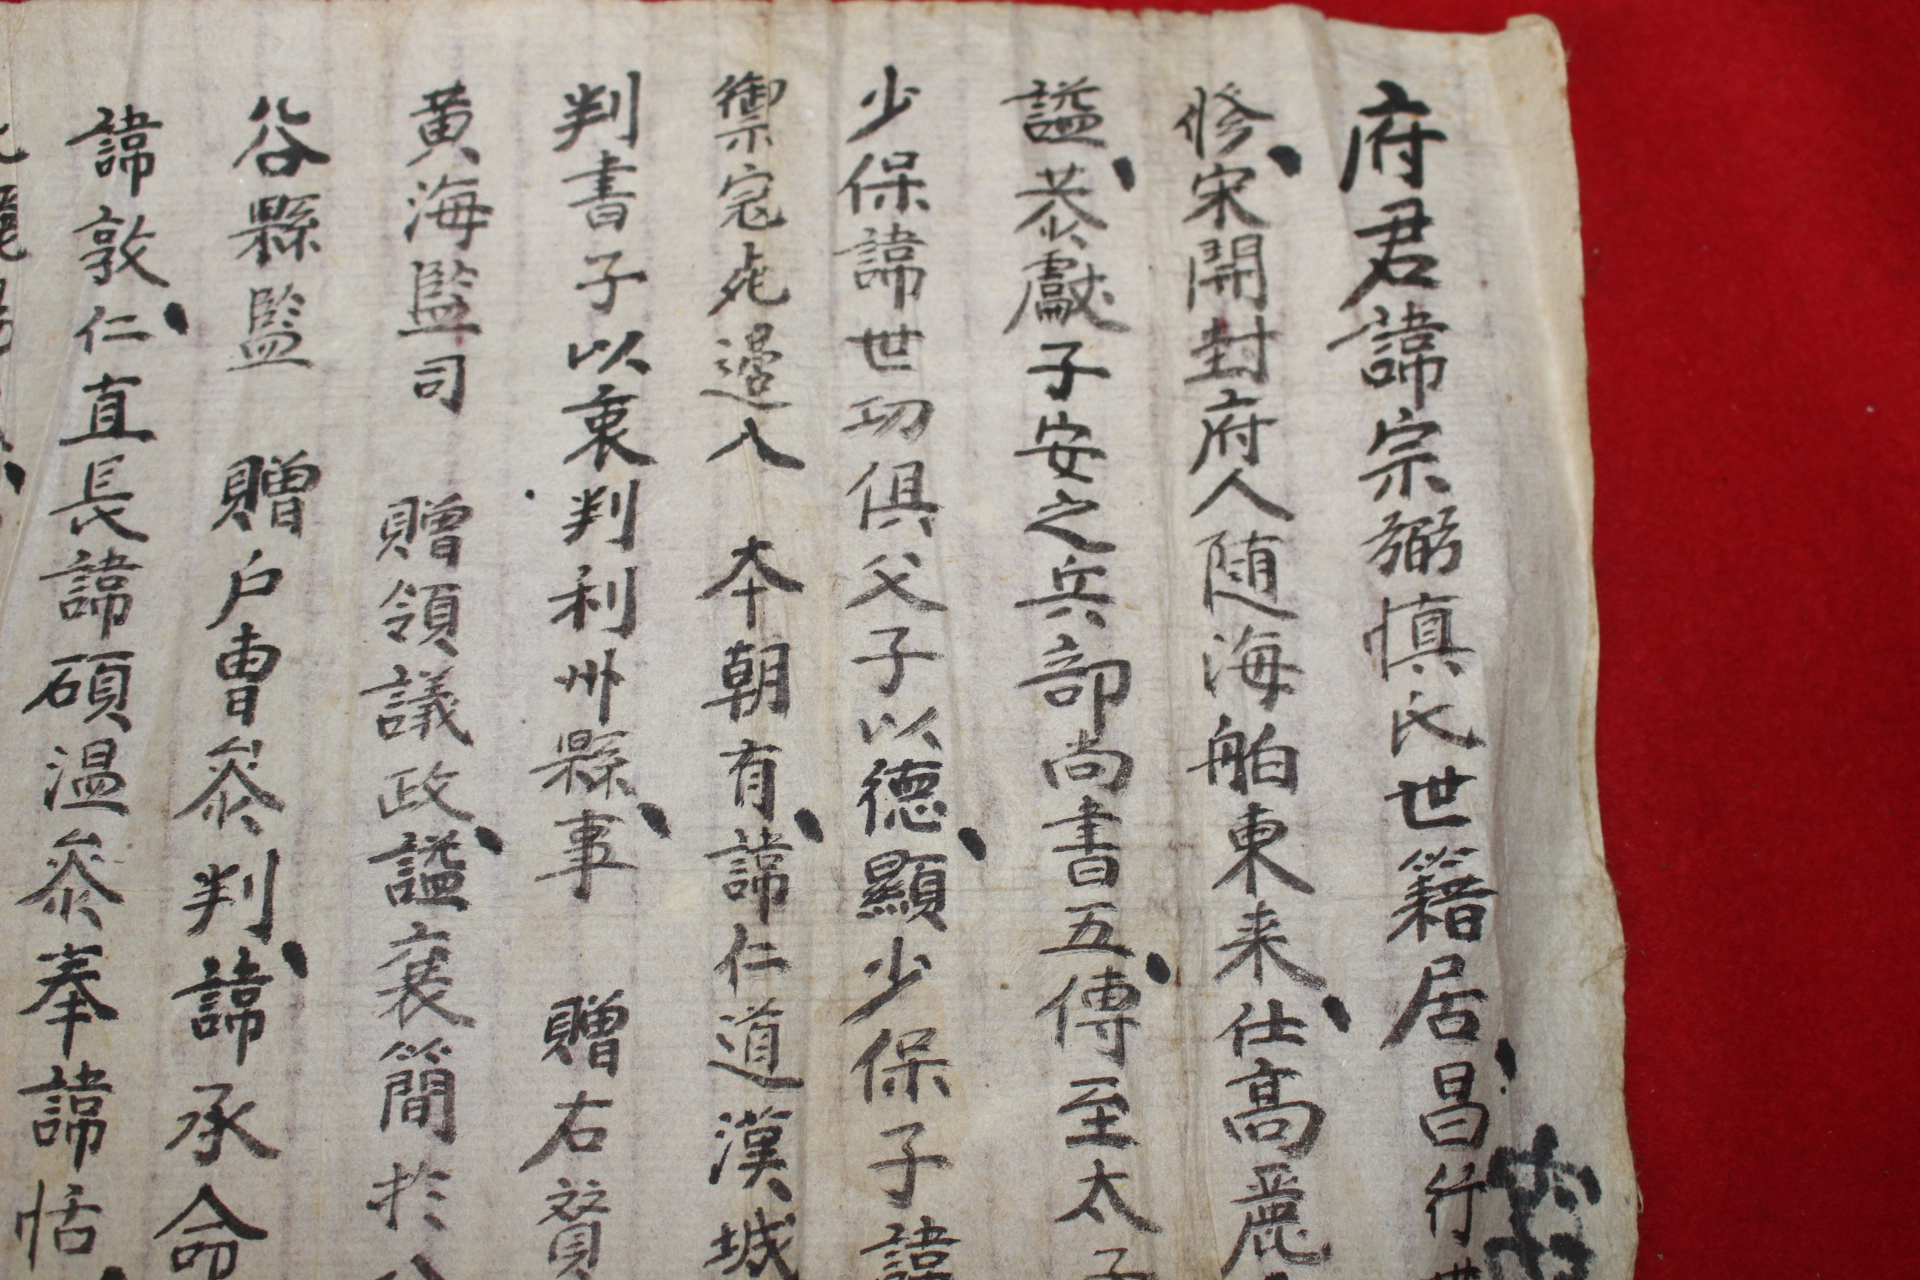 府君諱宗弼愼氏世籍居昌行
修宋開封府人随海舶東来仕高麗
謚恭獻子安之兵部尚書五傳至太子
少保諱世功俱父子以德顯少保子諱
禦寇死邊八 夲朝有諱仁道漢城
判書子以衷判利州縣事 贈右贊
黄海監司 贈領議政謚襄簡於
谷縣監 贈户曹叅判諱承命
諱敦仁直長諱碩温叅奉諱恬